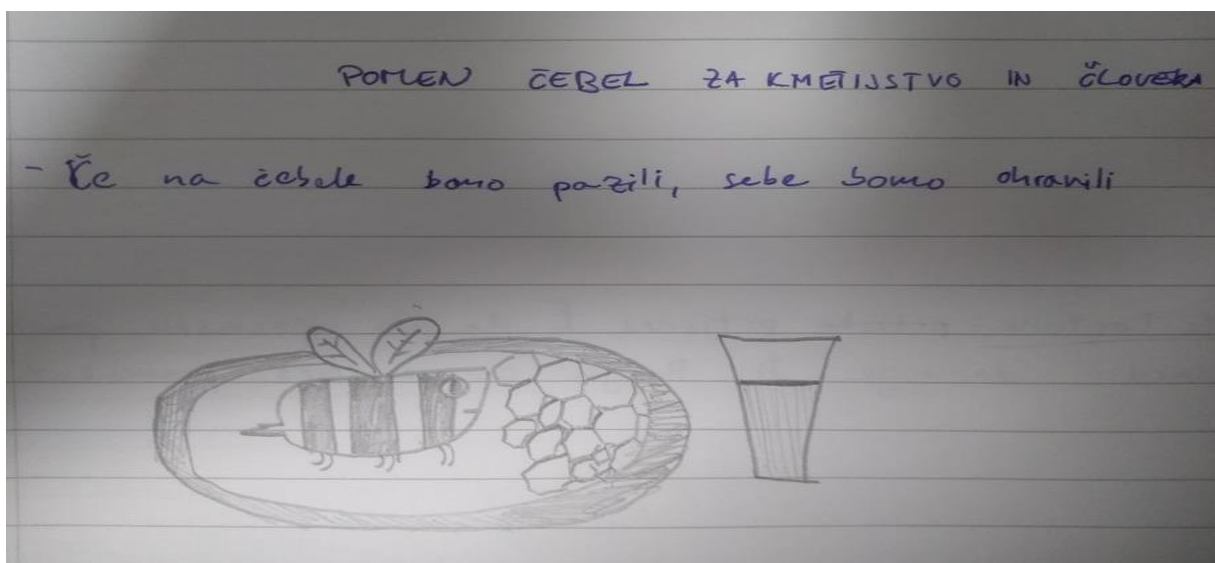 POMEN ČEBEL ZA KMETIJSTVO IN ČLOVEKA
- Če na čebele bomo pazili, sebe bomo ohranili